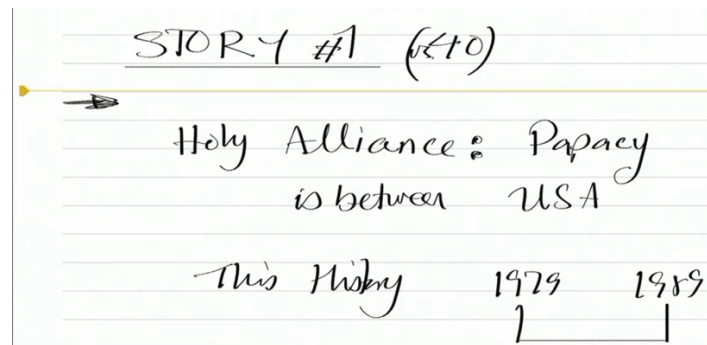 STORY #1
Holy Alliance: Papacy
is between USA
This History 1979 1989